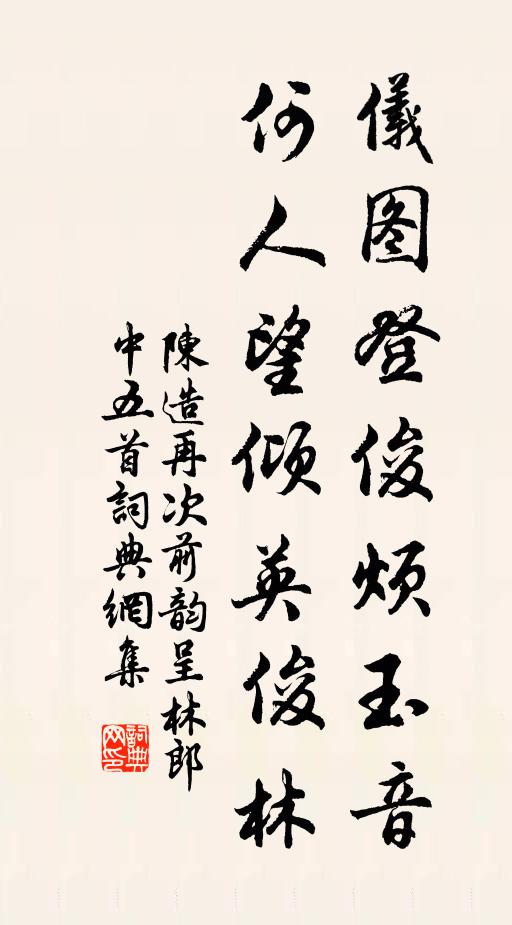 儀图登俊煩玉音
何人望傾英俊林
陳造再次前韵呈林郎
中五首詞典網集
詞典网印